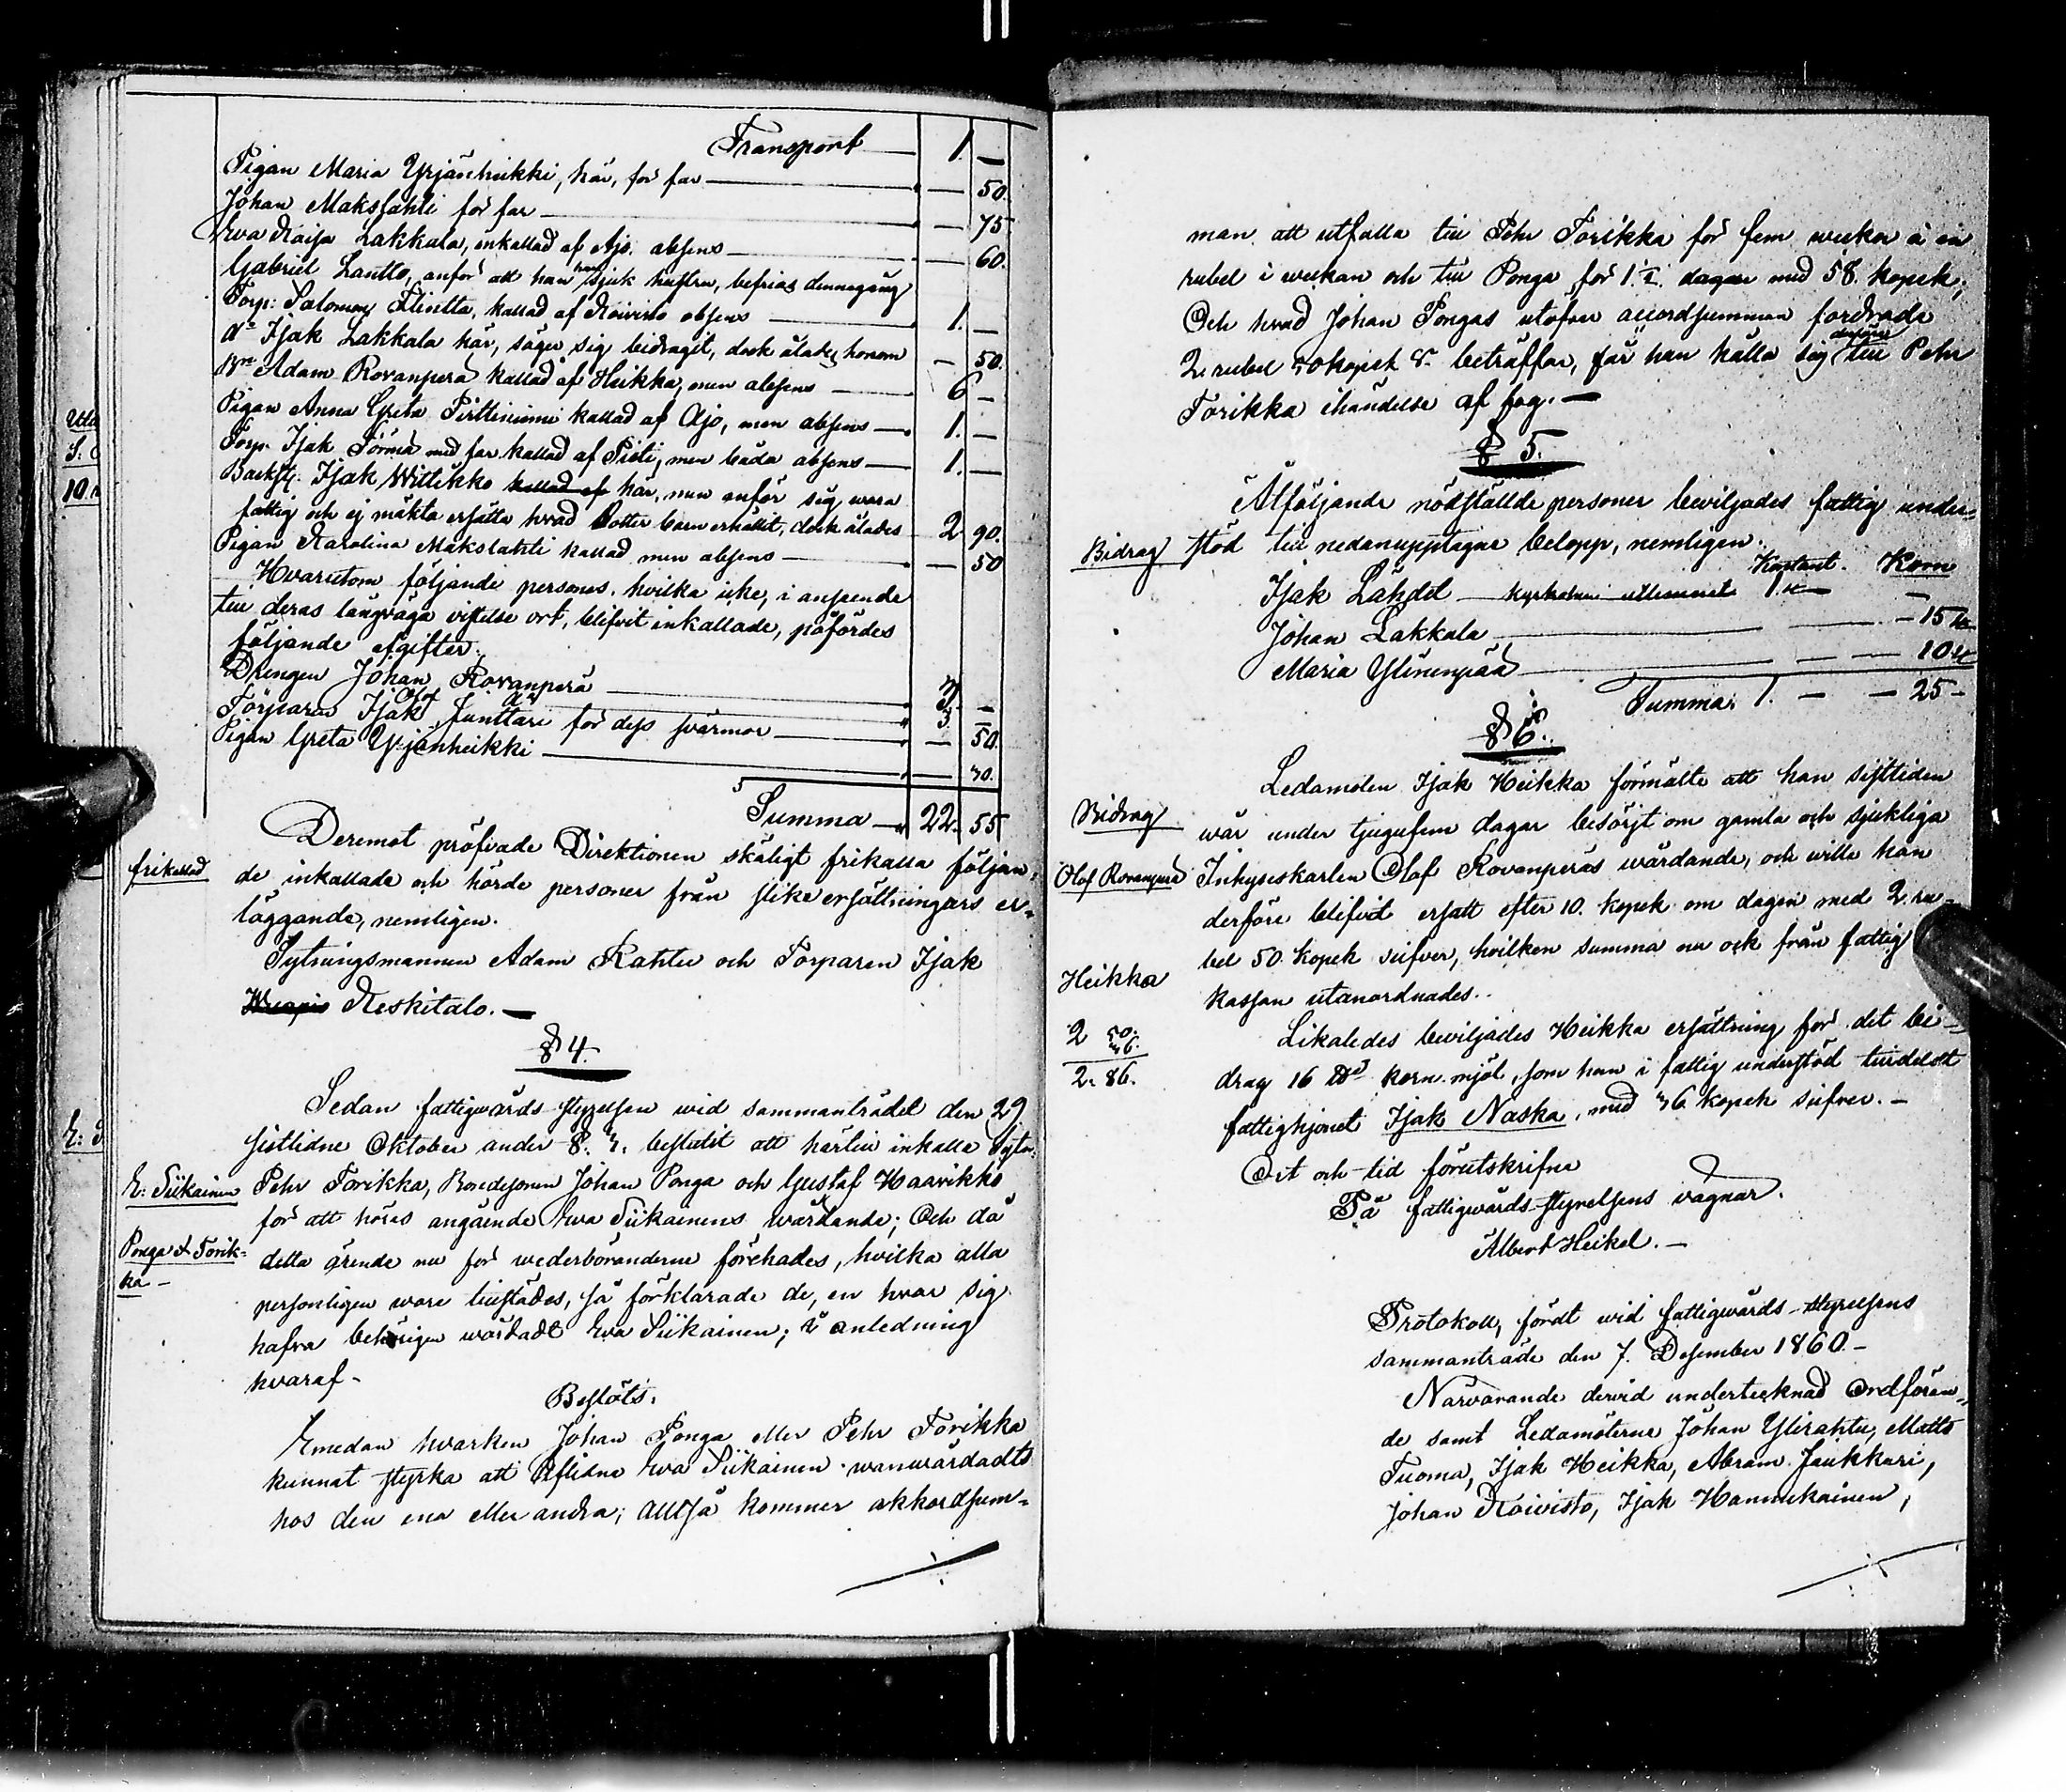 Transport 1. —
Pigan Maria Yrjänheikki, här, för far — 50.
Johan Makslahti för far — 75
Eva Kaisa Lakkala, inkallad af Ajo. absens — 60.
Gabriel Lantto, anför att han har sjuk hustru, befrias dennagång
Torp: Salomon Flintta, kallad af Koivisto absens 1. —
do Isak Lakkala här, säger sig bedragit, dock ålades honom — 50.
Adam Rovanperä kallad af Heikka, men absens 6 —
Pigan Anna Greta Pirttiniemi kallad af Ajo, men absens 1. —
Torp. Isak Törmä med far kallad af Pisti, men båda absens 1. —
Backst. Isak Wittikko kallad af här, men anför sig wara
fattig och ej mäkta ersätta hvad Dotter barn erhållit, dock ålades 2 90.
Pigan Karolina Makslahti kallad men absens — 50
Hvarutom följande persones, hvilka icke, i anseende
till deras långväga vistelse ort, blifvit inkallade, påfördes
följande afgifter.
Drengen Johan Rovanperä 3. —
Torparen Isak Olof Junttari för dess svärmor 3 — 50.
Pigan Greta Yrjänheikki — 30.
Summa 22. 55
Deremot pröfvade Direktionen skäligt frikalla följan-
frikallad
de inkallade och hörde personer från slike ersättningars er-
läggande, nemligen.
Sytningsmannen Adam Rahtu och Torparen Isak
Keskitalo. —
§ 4.
Sedan fattigwårds styrelsen wid sammanträdet den 29
sistlidne Oktober under §. 3. beslutit att härtill inkalla Sytn:
E: Siikainen
Pehr Torikka, Bondesonen Johan Ponga och Gustaf Haarikko
för att höras angående Ewa Siikainens wårdande; Och då
Ponga & Torik-
ka —
detta ärende nu för wederböranderne förehades, hvilka alla
personligen wore tillstädes, så förklarade de, en hvar sig
hafva behörigen wårdadt Ewa Siikainen; i anledning
hvaraf -
Beslöts.
Emedan hvarken Johan Ponga eller Pehr Torikka
kunnat styrka att Aflidne Ewa Siikainen wanwårdadts
hos den ena eller andra; Alltså kommer akkordsum-
man att utfalla till Pehr Torikka för fem weckor à en
rubel i weckan och till Ponga för dagar med 58. kopek;
Och hvad Johan Pongas utöfver accordsumman fordrade
2. rubel 50 kopek Sr beträffar, får han hålla sig derföre till Pehr
Torikka ihändelse af fog. —
§ 5.
Åtföljande nödställde personer beviljades fattig under-
Bidrag
stöd till nedanupptagne belopp, nemligen.
Kontant. Korn
Isak Lähdet 1 —
Johan Lakkala — 15
Maria Ylinenpää — 10
Summa 1. — — 25 —
§ 6.
Ledamoten Isak Heikka förmälte att han sisttiden
Bidrag
wår under tjugufem dagar besörjt om gamla och sjukliga
Olof Rovanperä
Inhyseskarlen Olof Rovanperäs wårdande, och wille han
derföre blifvit ersatt efter 10. kopek om dagen med 2. ru-
bel 50. kopek silfver, hvilken summa nu ock från fattig
Heikka
kassan utanordnades..
2 50.
36.
2. 86.
Likaledes beviljades Heikka ersättning för det bi-
drag 16 korn mjöl, som han i fattig understöd tilldelat
fattighjonet Isak Naska, med 36 kopek silfver. —
Ort och tid förutskrifne
På fattigwårds-styrelsens vägnar.
Albert Heikel. —
Protokoll, fördt wid fattigwårds-styrelsens
sammanträde den 7. Desember 1860. —
Närvarande dervid undertecknad Ordföran-
de samt Ledamöterne Johan Ylirahtu, Matts
Tuoma, Isak Heikka, Abram Jaukkuri,
Johan Koivisto, Isak Hannukainen,